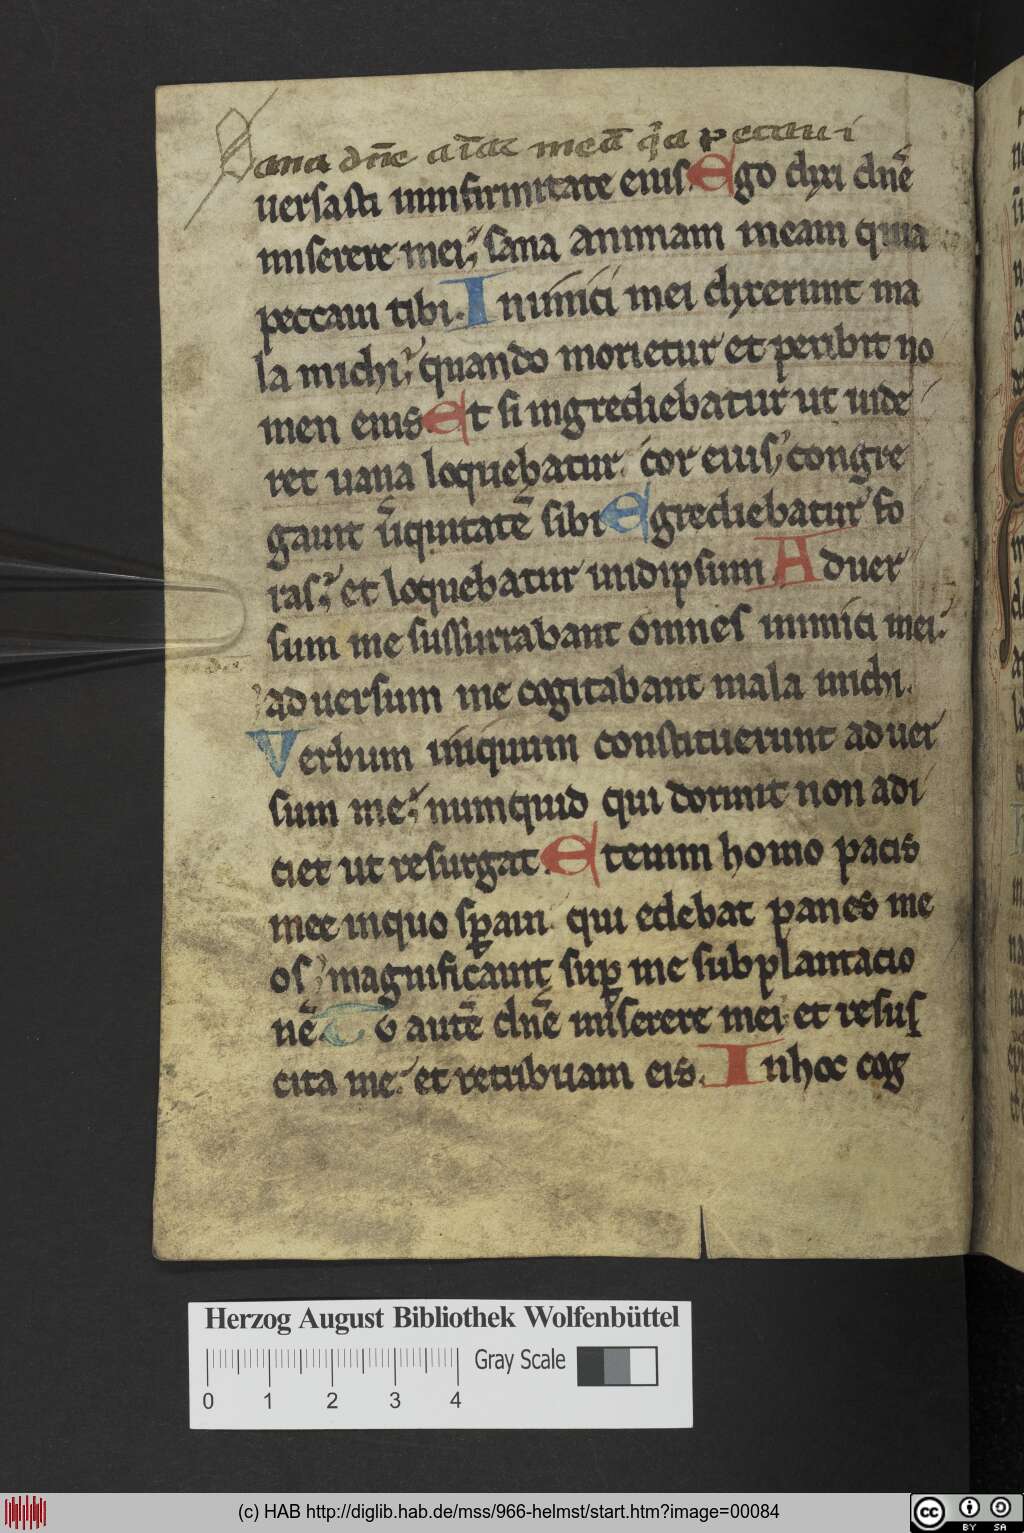 Sana dn̄e aīaꝫ meā q̄a peccaui
uersasti ininfirmitate eius. Ego dixi dn̄e
miserere mei; sana animam meam quia
peccaui tibi. Inimici mei dixerunt ma
la michi; quando morietur et peribit no
men eius. Et si ingrediebatur ut uide
ret uana loquebatur. cor eius congre
gauit īiquitatē sibi Egrediebatur fo
ras; et loquebatur inidipsum Aduer
sum me susurrabant omnes inimici mei.
aduersum me cogitabant mala michi.
Verbum iniquum constituerunt aduer
sum me; numquid qui dormit non adi
ciet ut resurgat. Etenim homo pacis
mee inquo sꝑaui qui edebat panes me
os; magnificauit suꝑ me subplantacio
nē. Tu autē dn̄e miserere mei et resus
cita me. et retribuam eis. Inhoc cog
Herzog August Bibliothek Wolfenbüttel
Gray Scale
0 1 2 3 4
(c) HAB http://diglib.hab.de/mss/966-helmst/start.htm?image=00084
cc BY SA